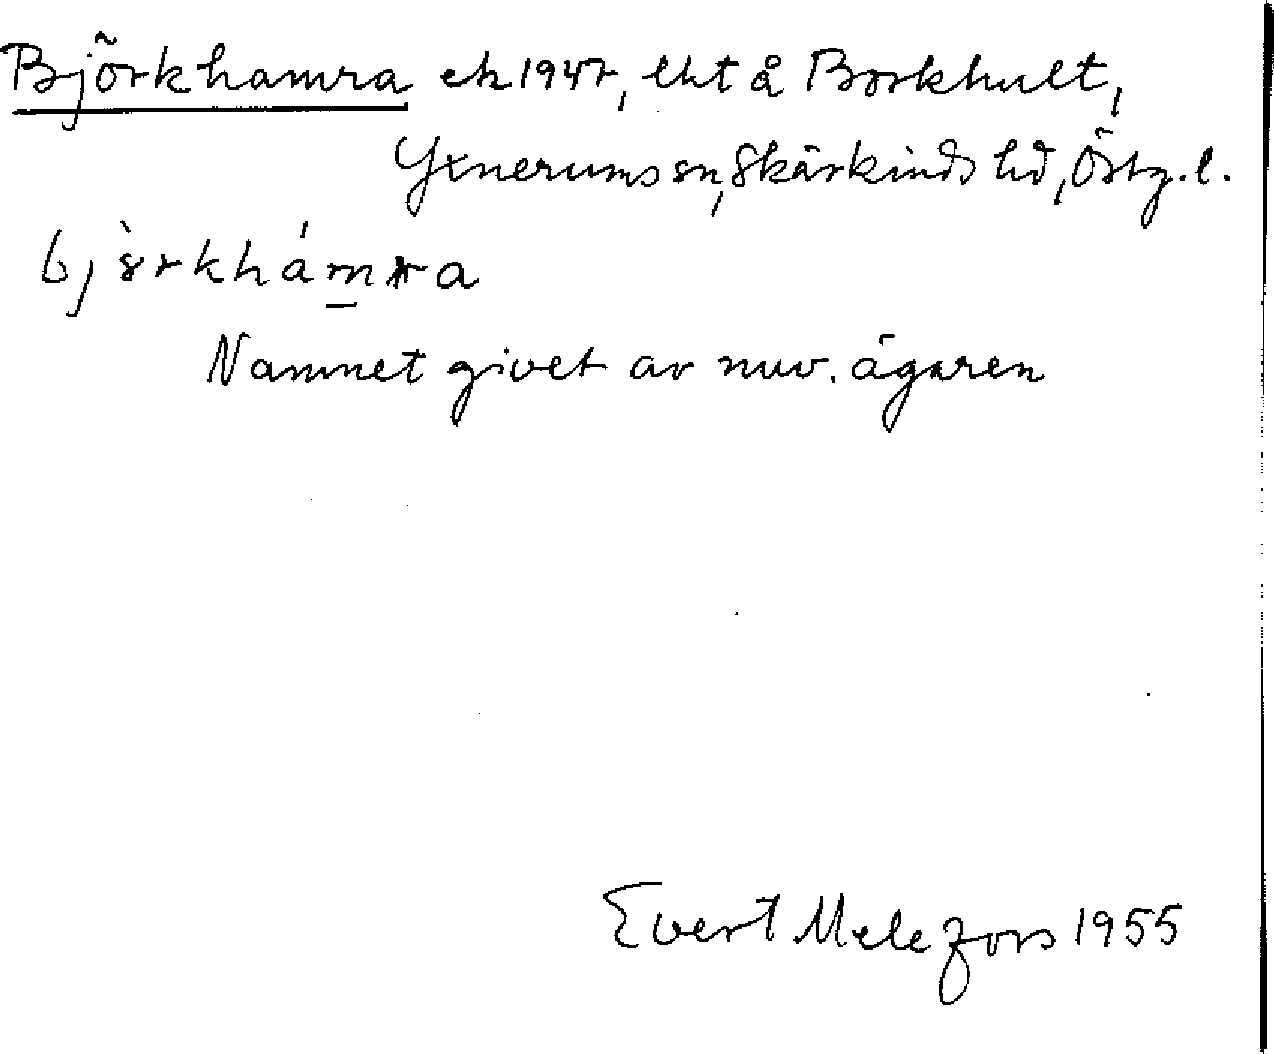 Björkhamra ek 1947, lht å Borkhult,
Yxnerums sn, Skärkinds hd, Östg. l.
bjɵ̀rkhám̲ra
Namnet givet av nuv. ägaren
Evert Melefors 1955